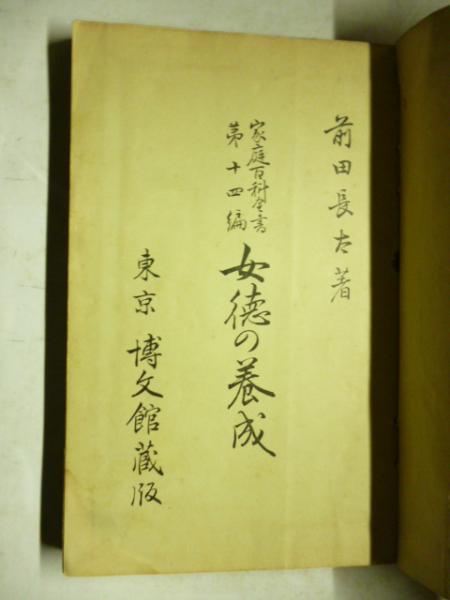 前田長太著
家庭百科全書
第十四編
女徳の養成
東京 博文館蔵版